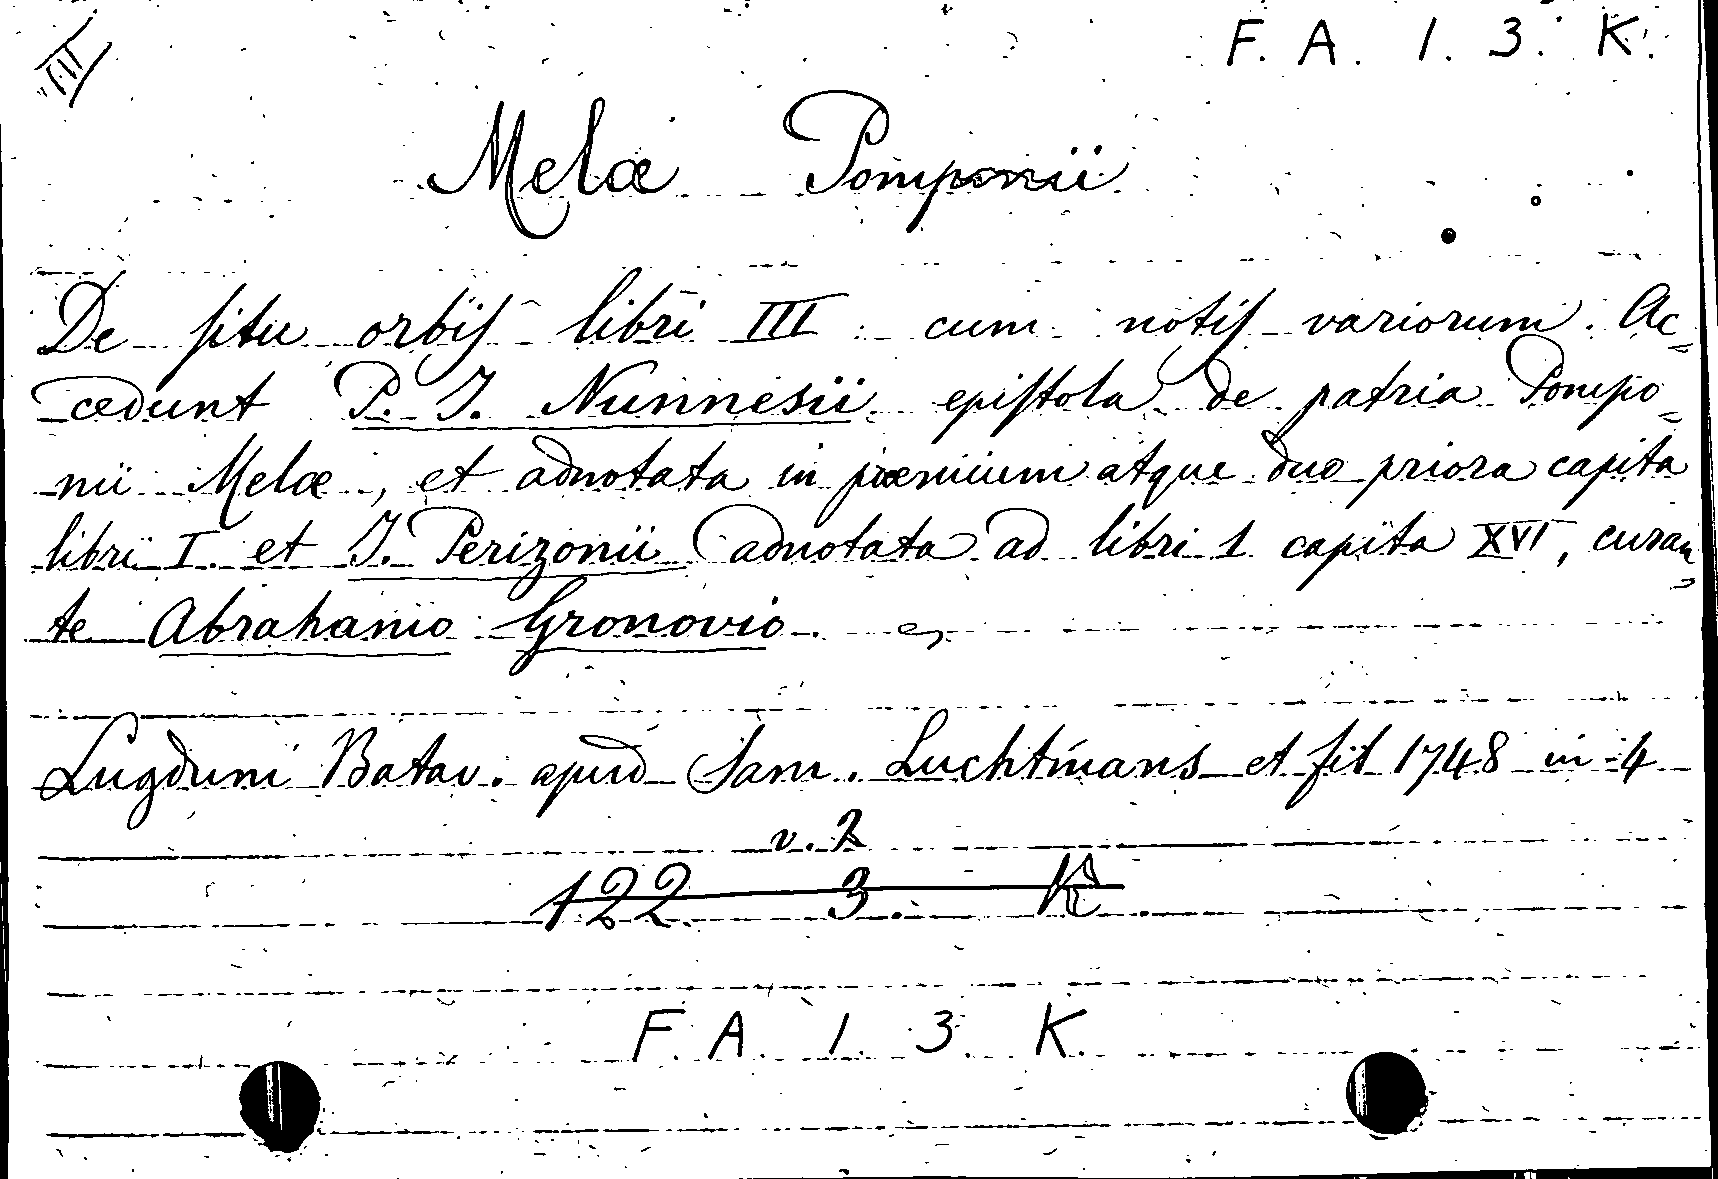 VII
F. A. 1. 3. K.
Melæ Pomponii
De ſitu orbiſ libri III cum notiſ variorum. Ac=
cedunt P. J. Nunnesii epiſtola de patria Pompo=
nii Melæ, et adnotata in prœmium atque duo priora capita
libri I. et J. Perizonii adnotata ad libri 1 capita XVI, curan=
te Abrahamo Gronovio.
Lugduni Batav. apud Sam. Luchtmans et fil 1748 in 4
v. 2
122 3. K
F. A. 1. 3. K.